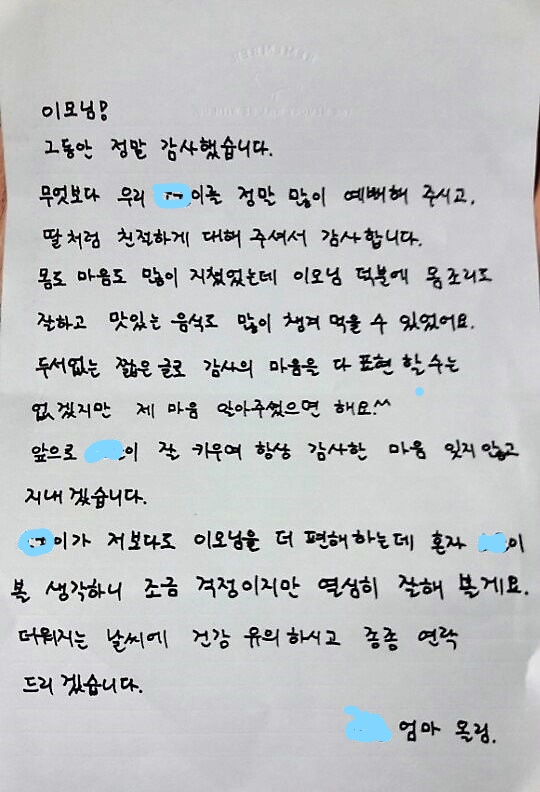 이모님!
그동안 정말 감사했습니다.
무엇보다 우리 이를 정말 많이 예뻐해 주시고,
딸처럼 친절하게 대해 주셔서 감사합니다.
몸도 마음도 많이 지쳤었는데 이모님 덕분에 몸조리도
잘하고 맛있는 음식도 많이 챙겨 먹을 수 있었어요.
두서없는 짧은 글로 감사의 마음을 다 표현 할 수는
없겠지만 제 마음 알아주셨으면 해요^^
앞으로 이 잘 키우며 항상 감사한 마음 잊지 않고
지내겠습니다.
이가 저보다도 이모님을 더 편해하는데 혼자 이
볼 생각하니 조금 걱정이지만 열심히 잘해 볼게요.
더워지는 날씨에 건강 유의하시고 종종 연락
드리겠습니다.
엄마 올림.